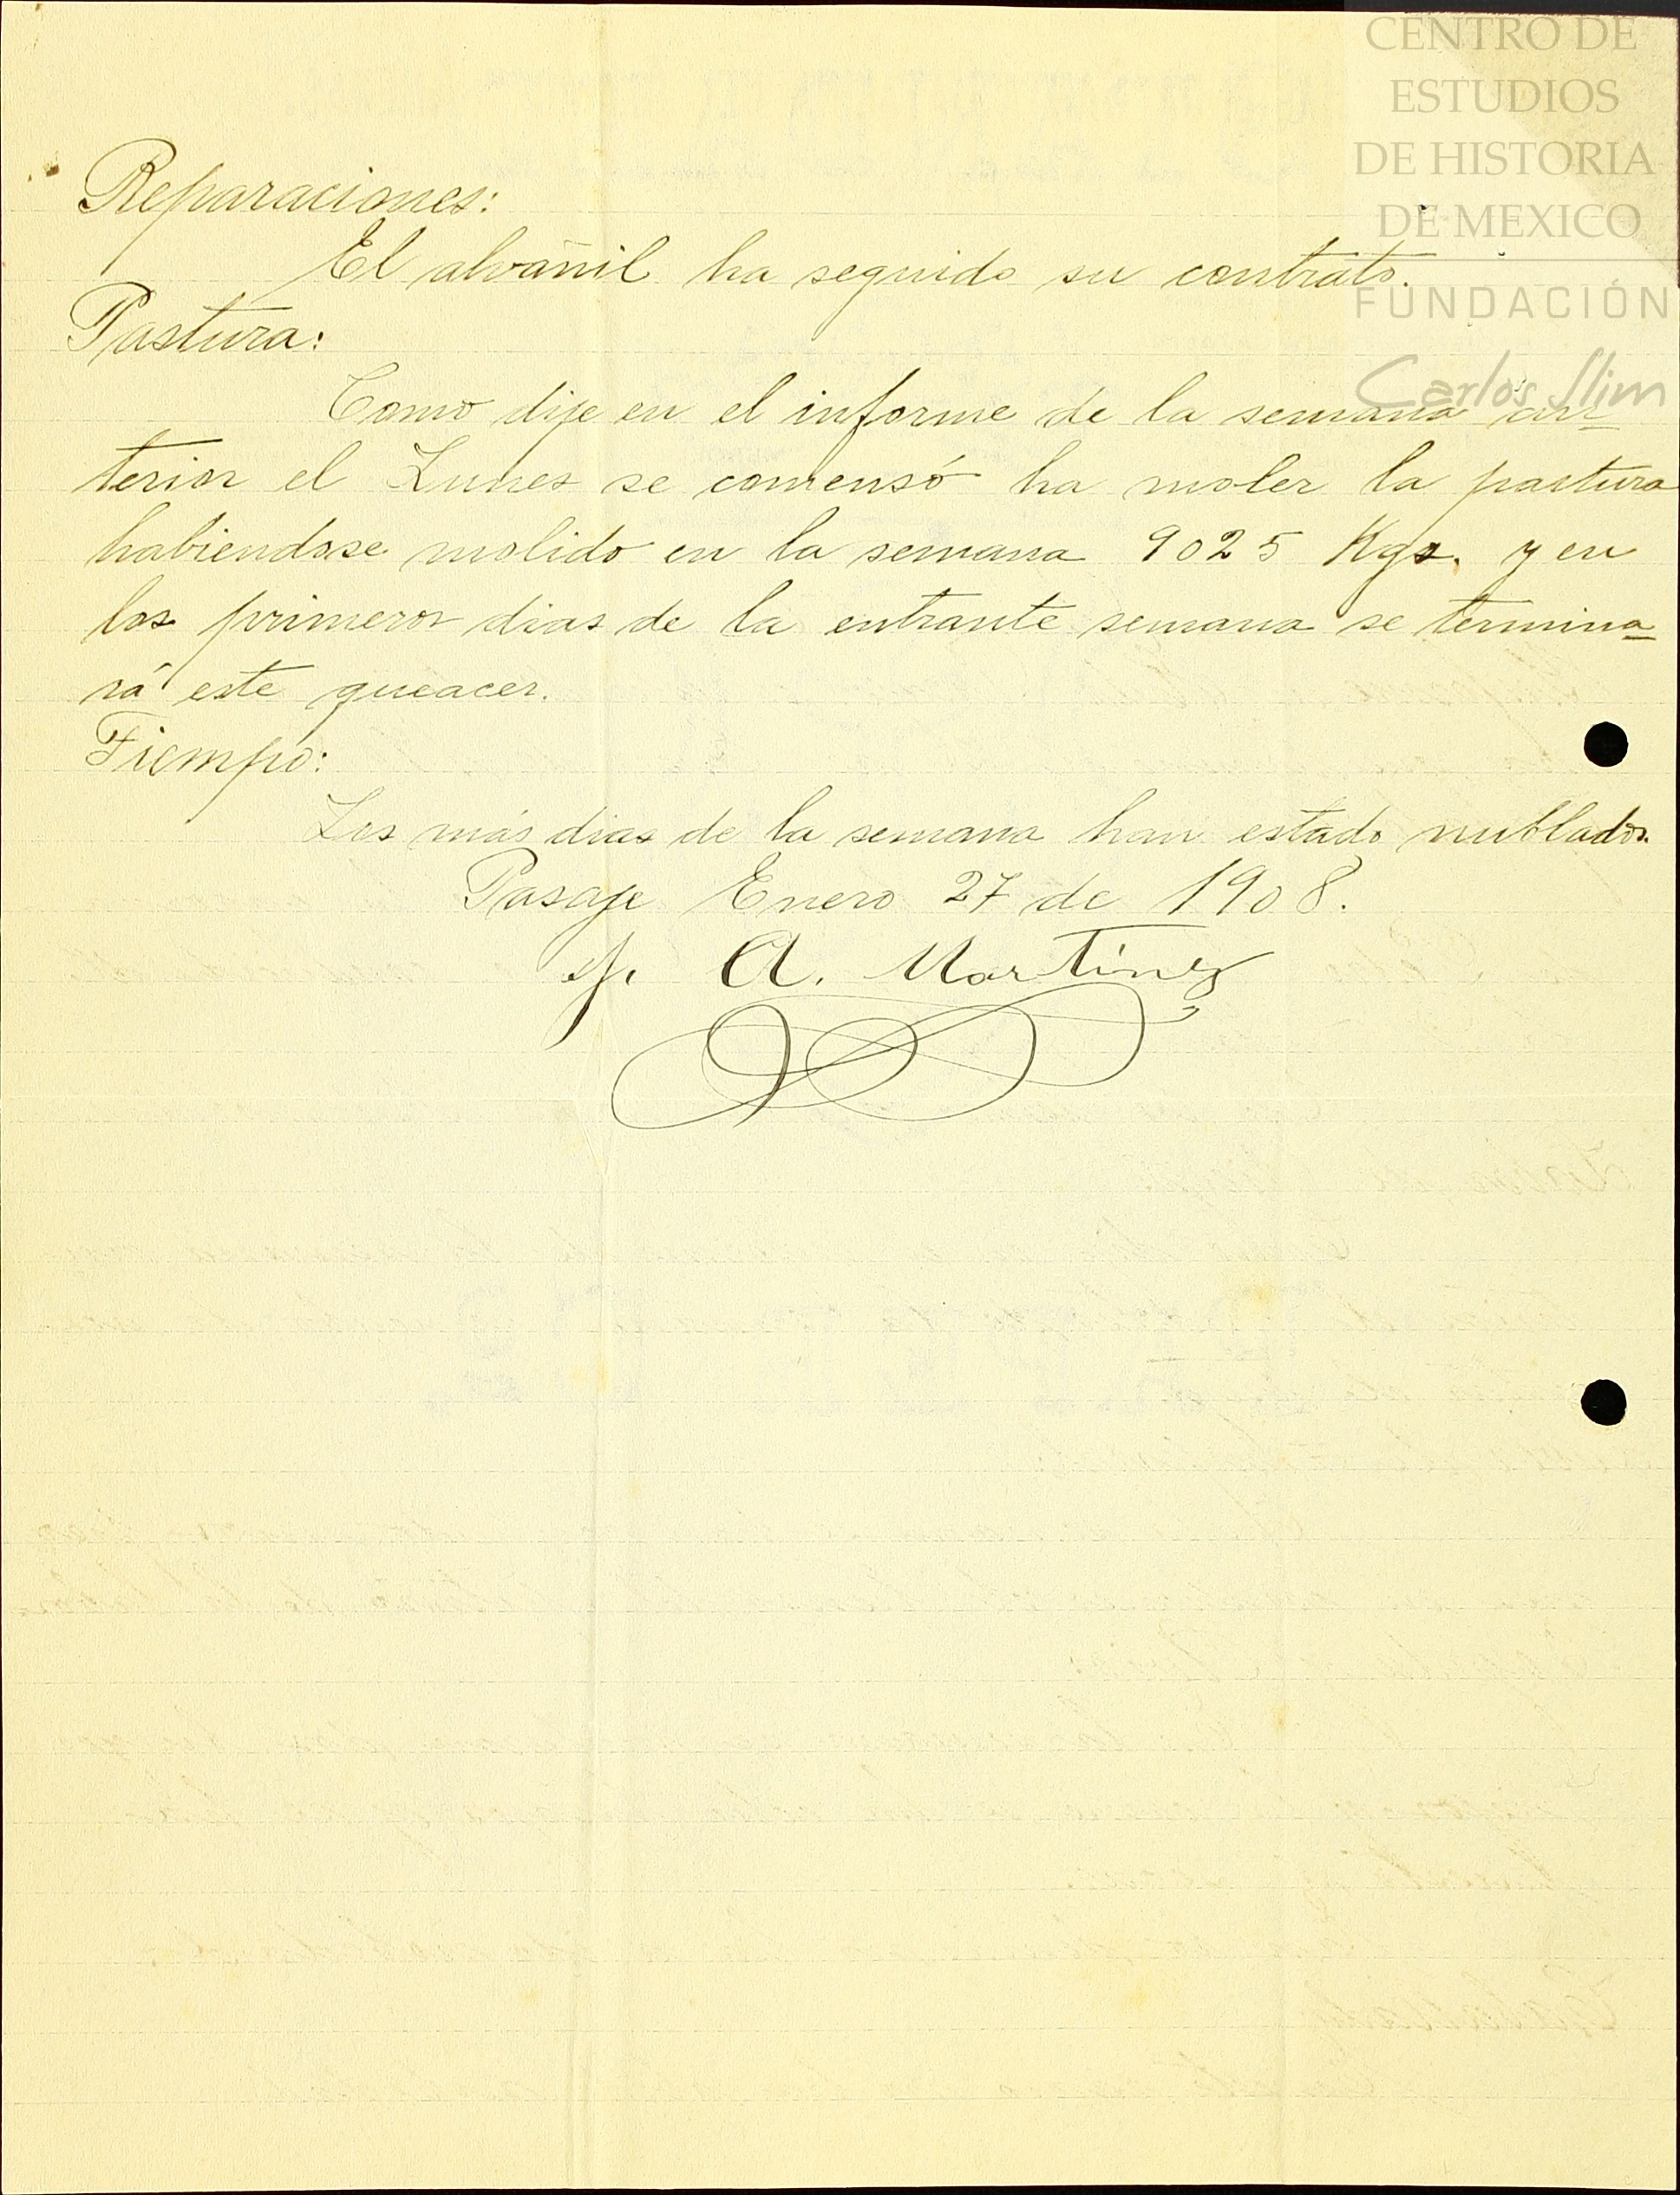 CENTRO DE
ESTUDIOS
DE HISTORIA
DE MEXICO
FUNDACIÓN
Carlos Slim
Reparaciones:
El alvañil ha seguido su contrato.
Pastura:
Como dije en el informe de la semana an-
terior el Lunes se comensó ha moler la pastura
habiendose molido en la semana 9025 Kgs. y en
los primeros dias de la entrante semana se termina-
rá este queacer.
Tiempo:
Los más dias de la semana han estado nublados.
Pasaje Enero 27 de 1908.
A. Martínez